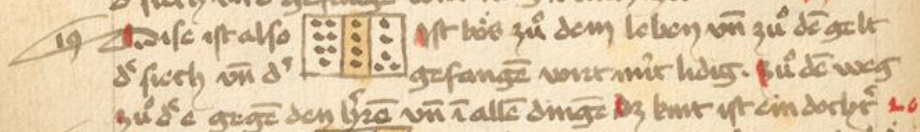 19 Dise ist also Ist bös zů dem leben vn̄ zů dē gelt
dˢ siech vn̄ dˢ gefangē wirt nüt lidig. Zů dē weg
zů dˢ e gegē den hˢrē vn̄ ī allē dingē Dz kint ist ein dochtˢ